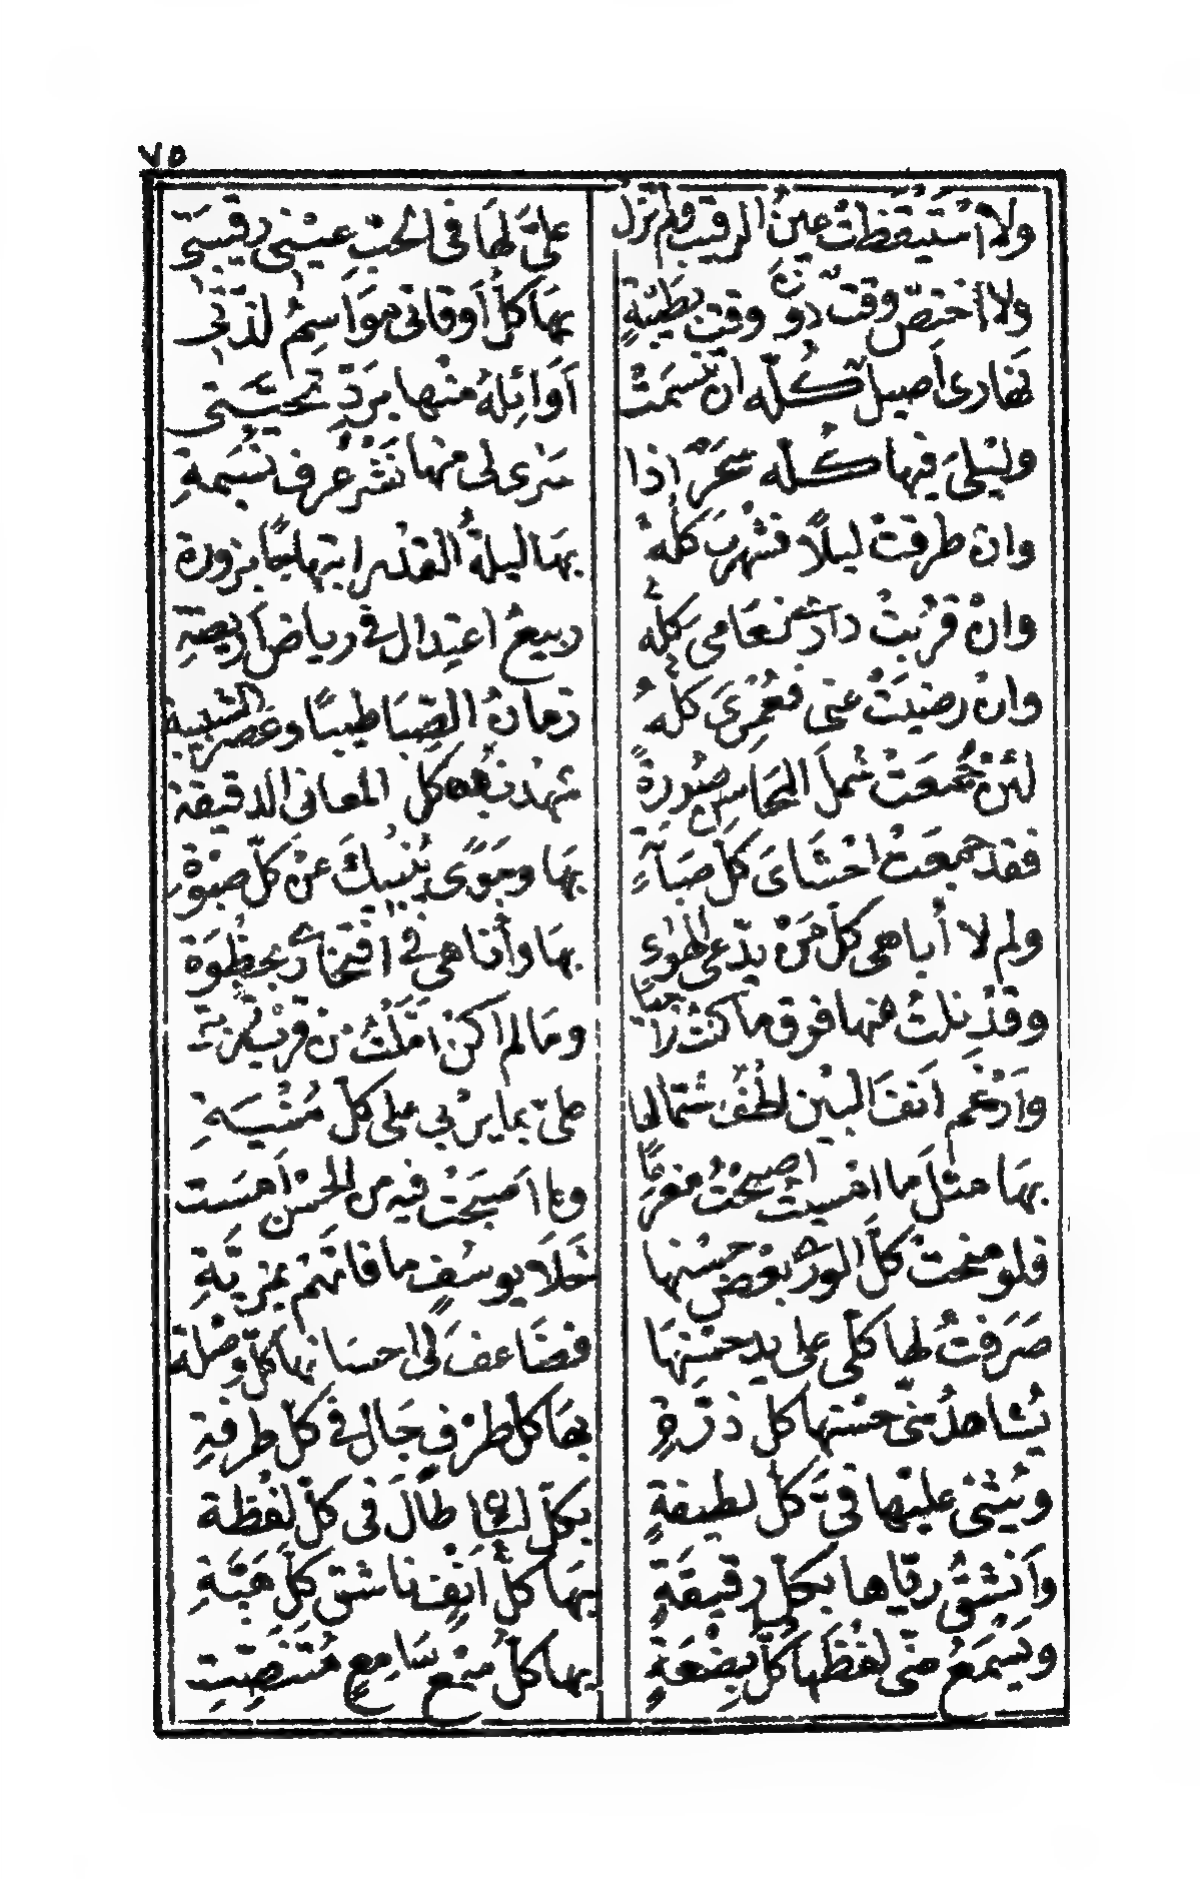 ٧٥
ولا استيقظت عين الرقيب ولم تزل علىّ لها فى الحب عينى رقيبتى
ولا اختصّ وقت دون وقت بطيبة بها كلّ أوقاتى مواسم لذّتى
نهارى أصيل كلّه ان تنسمت أوائله منها بردّ تحيتى
وليلى فيها كله سحر اذا سرى لى منها نشر عرف نسيمة
وان طرقت ليلا فشهرى كله بها ليلة القدر ابتهاجا بزورة
وان قربت دارى فعامى كله ربيع اعتدال فى رياض أريضة
وان رضيت عنى فعمرى كله زمان الصبا طيبا وعصر الشبيبة
لئن جمعت شمل المحاسن صورة شهدت بها كل المعانى الدقيقة
فقد جمعت احشاى كل صبابة بها وجوى ينبيك عن كلّ صبوة
ولم لا أباهى كل من يدّعى الهوى بها وأناهى فى افتخارى بحظوة
وقد نلت منها فوق ما كنت راجيا وما لم اكن امّلت من قرب قربتى
وأرغم أنف البين لطف اشتمالها علىّ بما يربى على كل منية
بها مثل ما امسيت اصبحت مغرما وما اصبحت فيه من الحسن أمست
فلو منحت كلّ الورى بعض حسنها خلا يوسف ما فاتهم بمزيّة
صرفت لها كلّى على يد حسنها فضاعف لى احسانها كلّ وصلة
يشاهد منّى حسنها كل ذرّة بها كل طرف جال فى كل طرفة
ويثنى عليها فىّ كلّ لطيفة بكلّ لسان طال فى كلّ لفظة
وأنشق ريّاها بكل رقيقة بها كلّ أنف ناشق كلّ هبّة
ويسمع منّى لفظها كلّ بضعة بها كلّ سمع سامع متنصّت